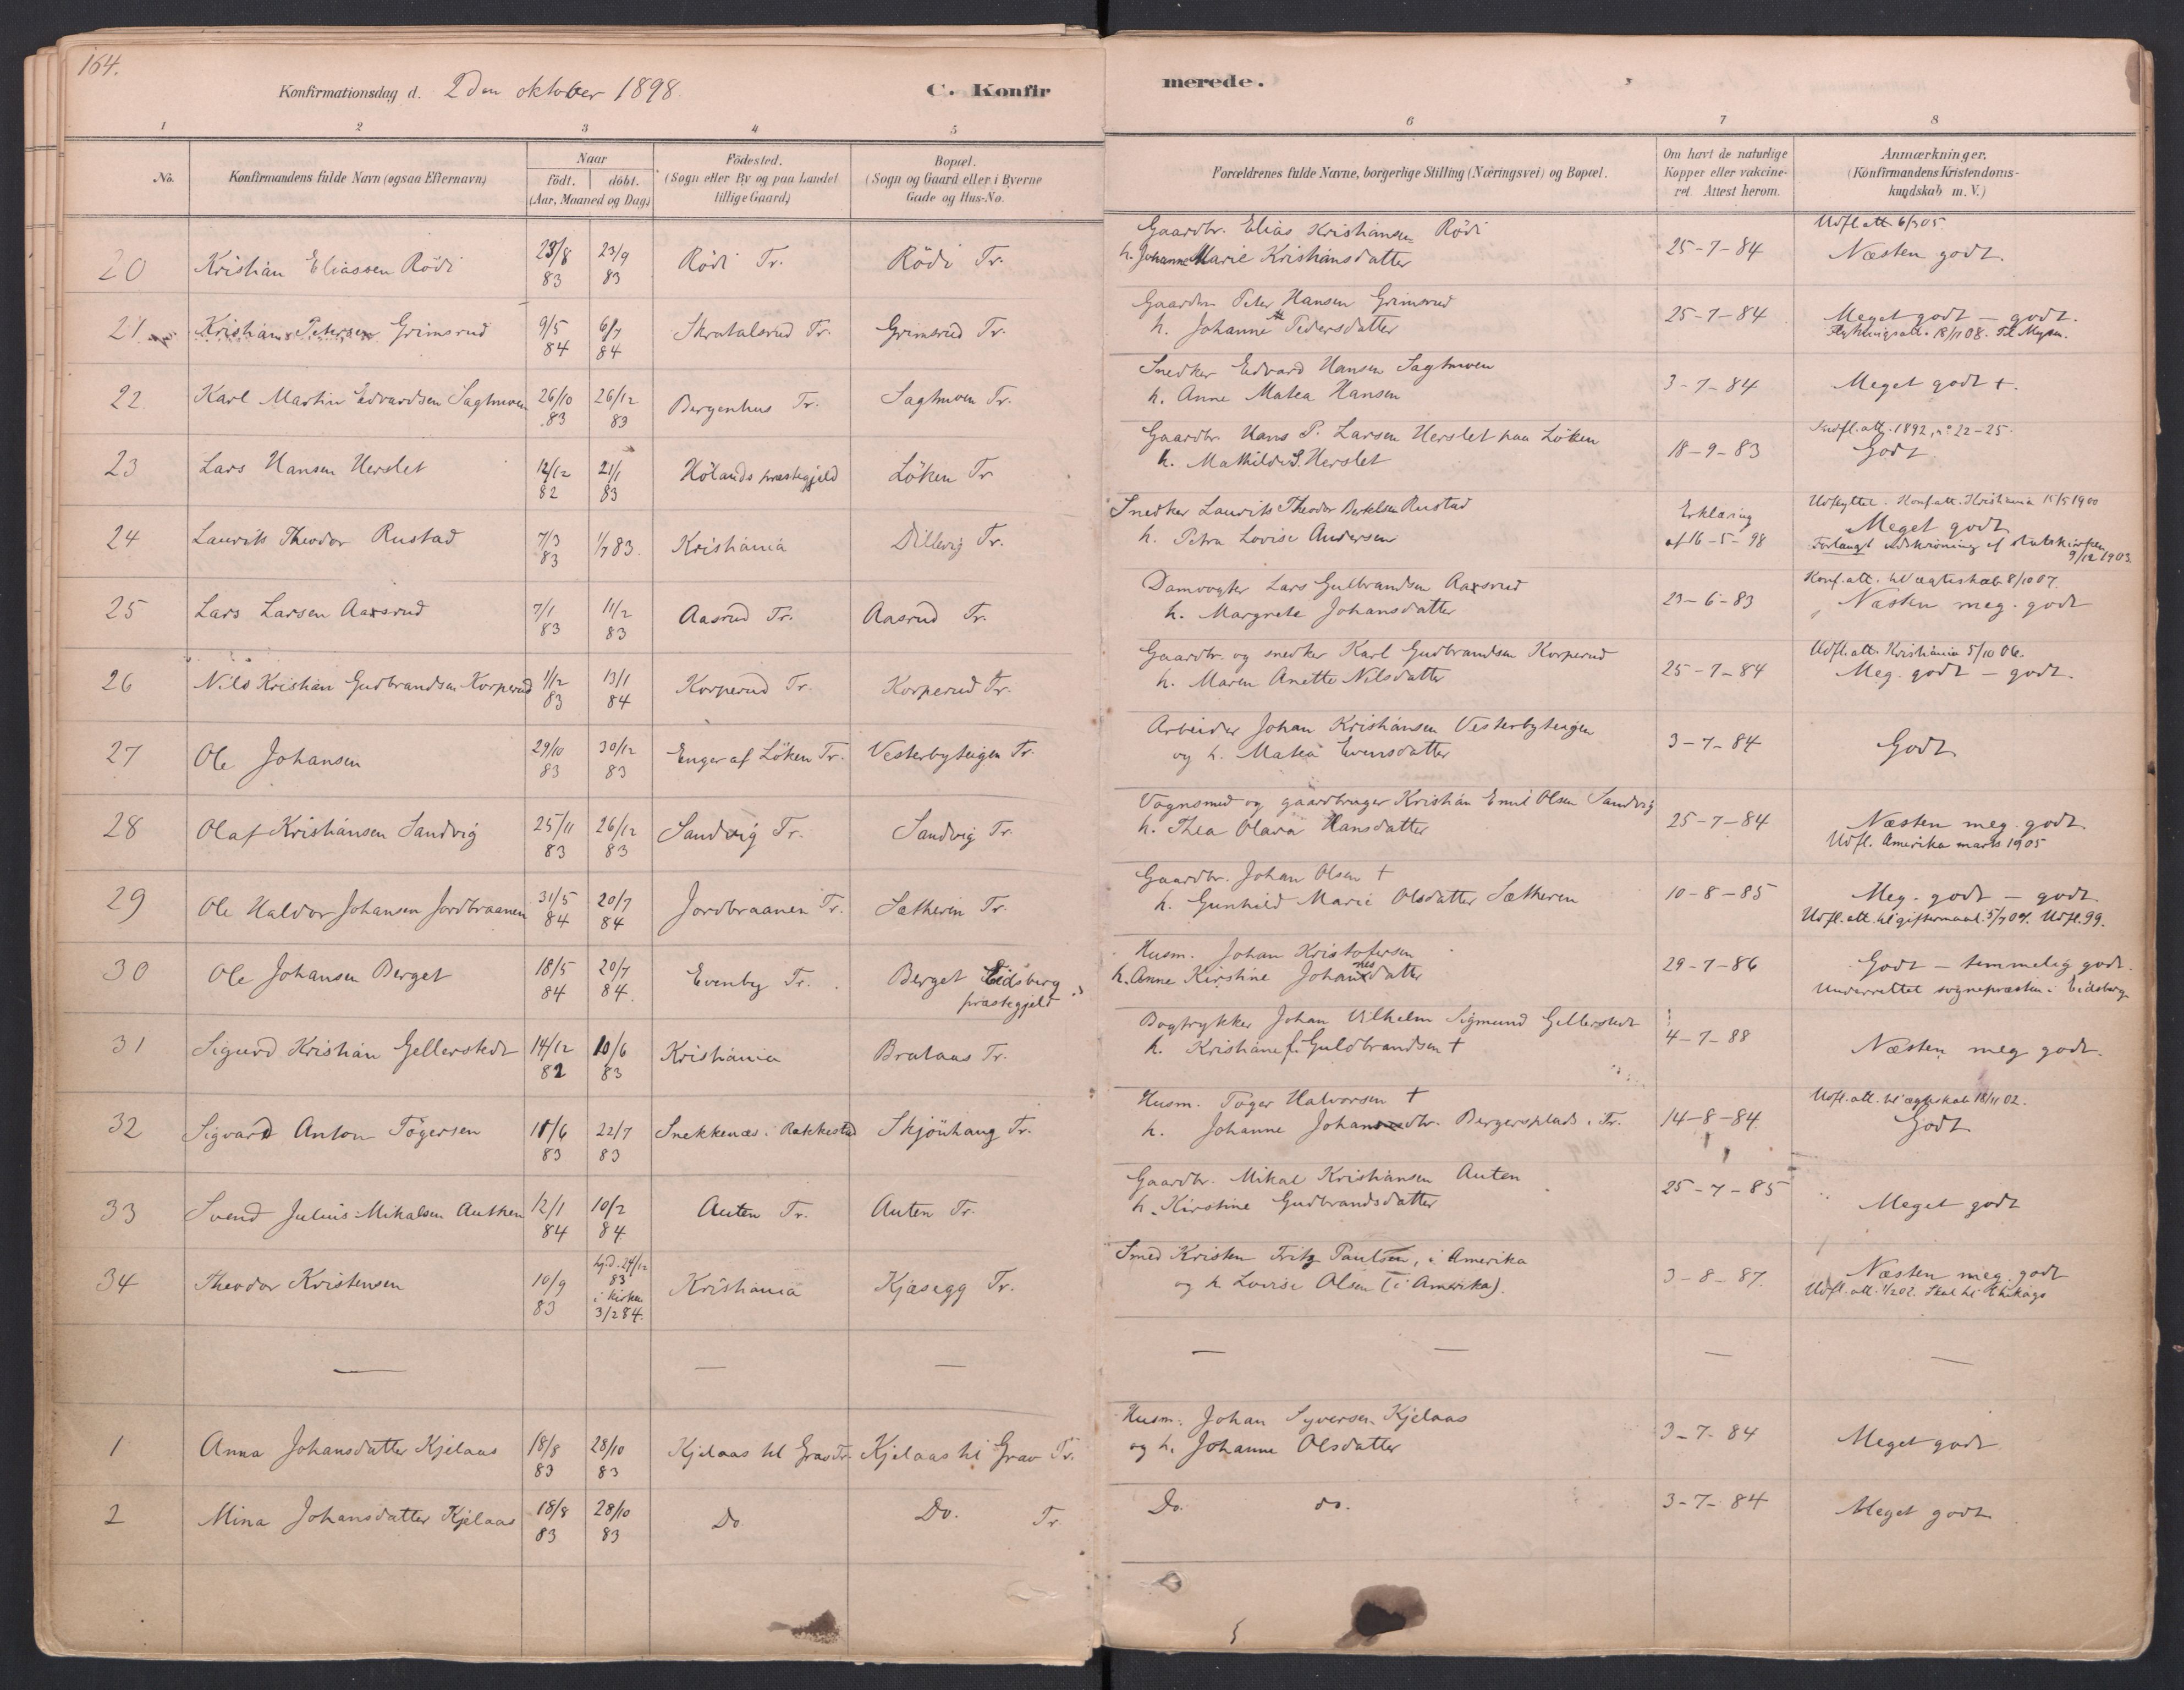 164.
Konfirmationsdag d. 2den oktober 1898.
C. Konfirmerede.
1 2 3 4 5 6 7 8
No.
Konfirmandens fulde Navn (ogsaa Efternavn)
Naar
födt. döbt.
(Aar, Maaned og Dag.)
Födested.
(Sogn eller By og paa Landet
tillige Gaard.)
Bopæl.
(Sogn og Gaard eller i Byerne
Gade og Hus-No.
Forældrenes fulde Navne, borgerlige Stilling (Næringsvei) og Bopæl.
Om havt de naturlige
Kopper eller vakcine-
ret. Attest herom.
Anmærkninger.
(Konfirmandens Kristendoms-
kundskab m. V.)
20 Kristian Eliassen Rödi 23/8 83 23/9 83 Rödi Tr. Rödi Tr.
Gaardbr. Elias Kristiansen Rödi
h. Johanne Marie Kristiansdatter
25-7-84
Udfl.att. 6/3 05.
Næsten godt.
21 Kristian Petersen Grimsrud 9/5 84 6/7 84 Skratalsrud Tr. Grimsrud Tr.
Gaardbr. Peter Hansen Grimsrud
h. Johanne Pedersdatter
25-7-84
Meget godt - godt.
Flytningsatt. 18/11 08. Til Mysen.
22 Karl Martin Edvardsen Sagtmoen 26/10 83 26/12 83 Bergenhus Tr. Sagtmoen Tr.
Snedker Edvard Hansen Sagtmoen
h. Anne Matea Hansen
3-7-84
Meget godt +.
23 Lars Hansen Herslet 12/12 82 21/1 83 Hölands præstegjeld Löken Tr.
Gaardbr. Hans P. Larsen Herslet paa Löken
h. Mathilde S. Herslet
18-9-83
Indfl.att. 1892, no 22-25.
Godt
24 Laurits Theodor Rustad 7/3 83 1/7 83. Kristiania Dillevig Tr.
Snedker Laurits Theodor Bertelsen Rustad
h. Petra Lovise Andersen
Erklæring
af 16-5-98
Udflyttet. Konf.att. Kristiania 15/5 1900
Meget godt
Forlangt udskrivning af statskirken
9/12 1903.
25 Lars Larsen Aaxsrud 7/1 83 11/2 83 Aasrud Tr. Aasrud Tr.
Damvogter Lars Gulbrandsen Aaxsrud
h. Margrete Johansdatter
23-6-83
Konf.att. til ægteskab 8/10 07.
Næsten meg. godt
26 Nils Kristian Gudbrandsen Korperud 1/12 83 13/1 84 Korperud Tr. Korperud Tr.
Gaardbr. og snedker Karl Gudbrandsen Korperud
h. Maren Anette Nilsdatter
25-7-84
Udfl.att. Kristiania 5/10 06.
Meg. godt - godt.
27 Ole Johansen 29/10 83 30/12 83 Enger af Löken Tr. Vesterbyteigen Tr.
Arbeider Johan Kristiansen Vesterbyteigen
og h. Matea Evensdatter
3-7-84
Godt
28 Olaf Kristiansen Sandvig 25/11 83 26/12 83 Sandvig Tr. Sandvig Tr.
Vognsmed og gaardbruger Kristian Emil Olsen Sandvig
h. Thea Olava Hansdatter
25-7-84
Næsten meg. godt
Udfl. Amerika marts 1905
29 Ole Haldor Johansen Jordbraanen 31/5 84 20/7 84 Jordbraanen Tr. Sætheren Tr.
Gaardbr. Johan Olsen †
h. Gunhild Marie Olsdatter Sætheren
10-8-85
Meg. godt - godt.
Udfl.att. til giftermaal. 5/7 09. Udfl. 99.
30 Ole Johansen Berget 18/5 84 20/7 84. Evenby Tr. Berget Eidsberg
præstegjeld
Husm. Johan Kristofersen
h. Anne Kirstine Johannesdatter
29-7-86
Godt - temmelig godt.
Underrettet sognepræsten i Eidsberg
31 Sigurd Kristian Gellerstedt 14/12 82 10/6 83 Kristiania Brataas Tr.
Bogtrykker Johan Vilhelm Sigmund Gellerstedt
h. Kristiane f. Guldbrandsen †
4-7-88
Næsten meg godt.
32 Sigvard Anton Tögersen 11/6 83 22/7 83 Snekkenæs i Rakkestad Skjönhaug Tr.
Husm. Töger Halvorsen †
h. Johanne Johansdtr. Bergersplads i Tr.
14-8-84
Udfl.att. til ægteskab 18/11 02.
Godt
33 Svend Julius Mikalsen Authen 12/1 84 10/2 84 Auten Tr. Auten Tr.
Gaardbr. Mikal Kristiansen Auten
h. Kirstine Gudbrandsdatter
25-7-85
Meget godt
34 Theodor Kristensen 10/9 83 hj.d. 24/12 83 i kirken 3/2 84. Kristiania Kjæsegg Tr.
Smed Kristen Fritz Paulsen, i Amerika
og h Lovise Olsen (i Amerika).
3-8-87.
Næsten meg. godt
Udfl.att. 1/2 02. Skal til Chikago
— — — — — — —
1 Anna Johansdatter Kjelaas 18/8 83 28/10 83 Kjelaas til Grav Tr. Kjelaas til Grav Tr.
Husm. Johan Syversen Kjelaas
og h. Johanne Olsdatter
3-7-84
Meget godt
2 Mina Johansdatter Kjelaas 18/8 83 28/10 83 Do Do. Tr.
Do. do.
3-7-84
Meget godt